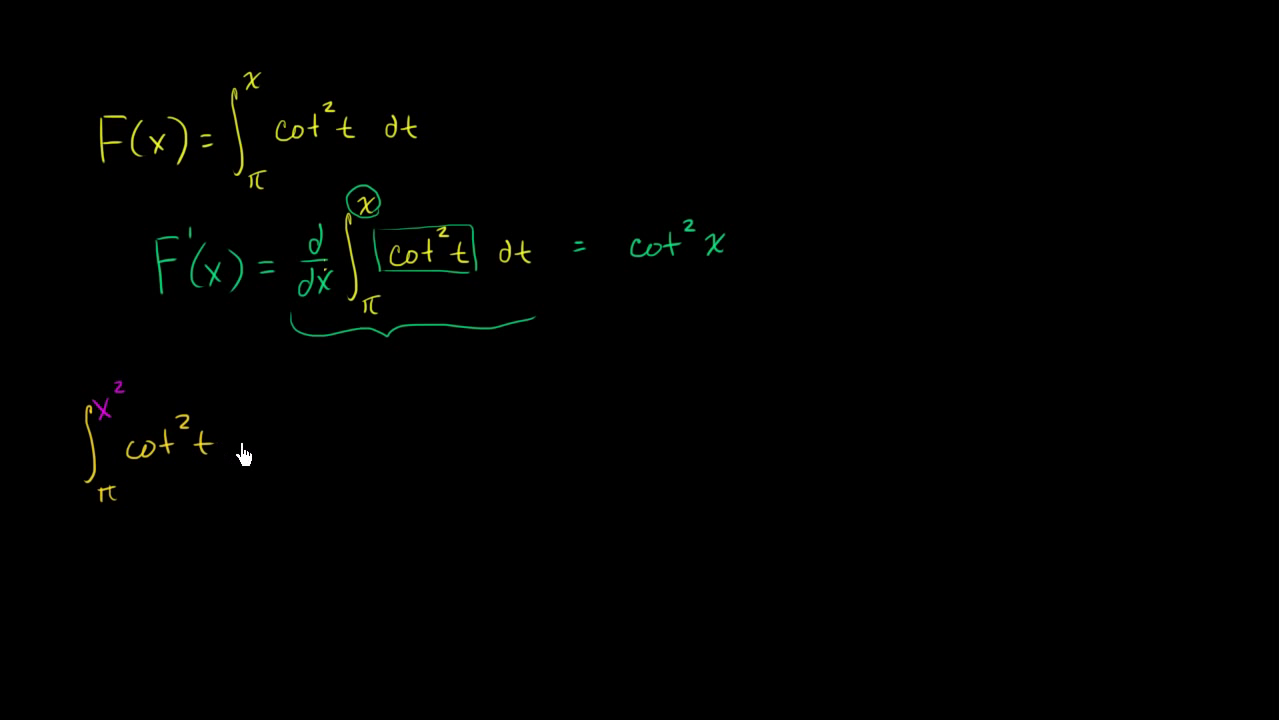 F(x) = ∫_π^x cot² t dt
F'(x) = d/dx ∫_π^x cot² t dt = cot² x
∫_π^x² cot² t